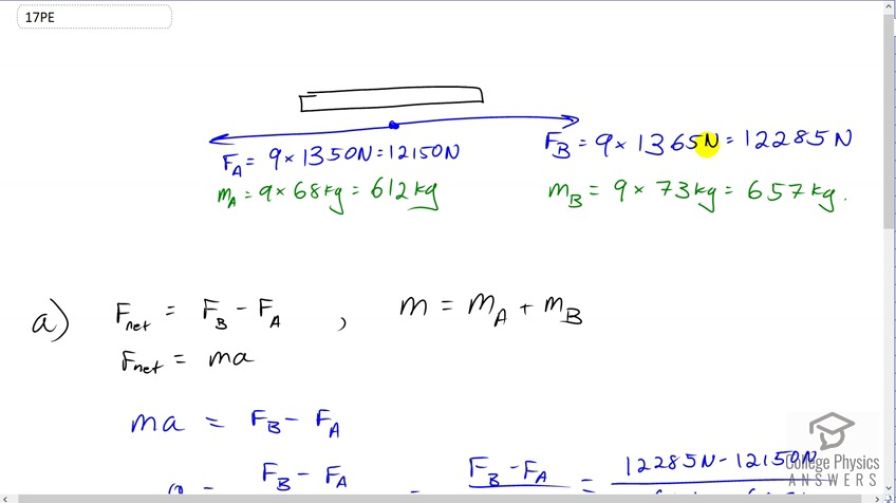 17PE
F_A = 9 × 1350N = 12150N
F_B = 9 × 1365N = 12285N
m_A = 9 × 68kg = 612kg
m_B = 9 × 73kg = 657kg.
a) F_net = F_B - F_A , m = m_A + m_B
F_net = ma
ma = F_B - F_A
F_B - F_A = F_B - F_A = 12285N - 12150N
College Physics
ANSWERS